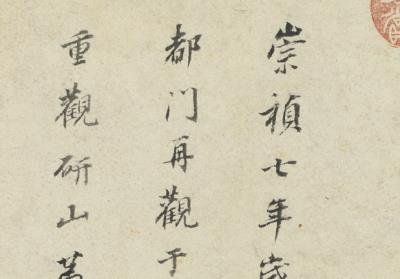 崇禎七年歲
都門再觀于
重觀研山